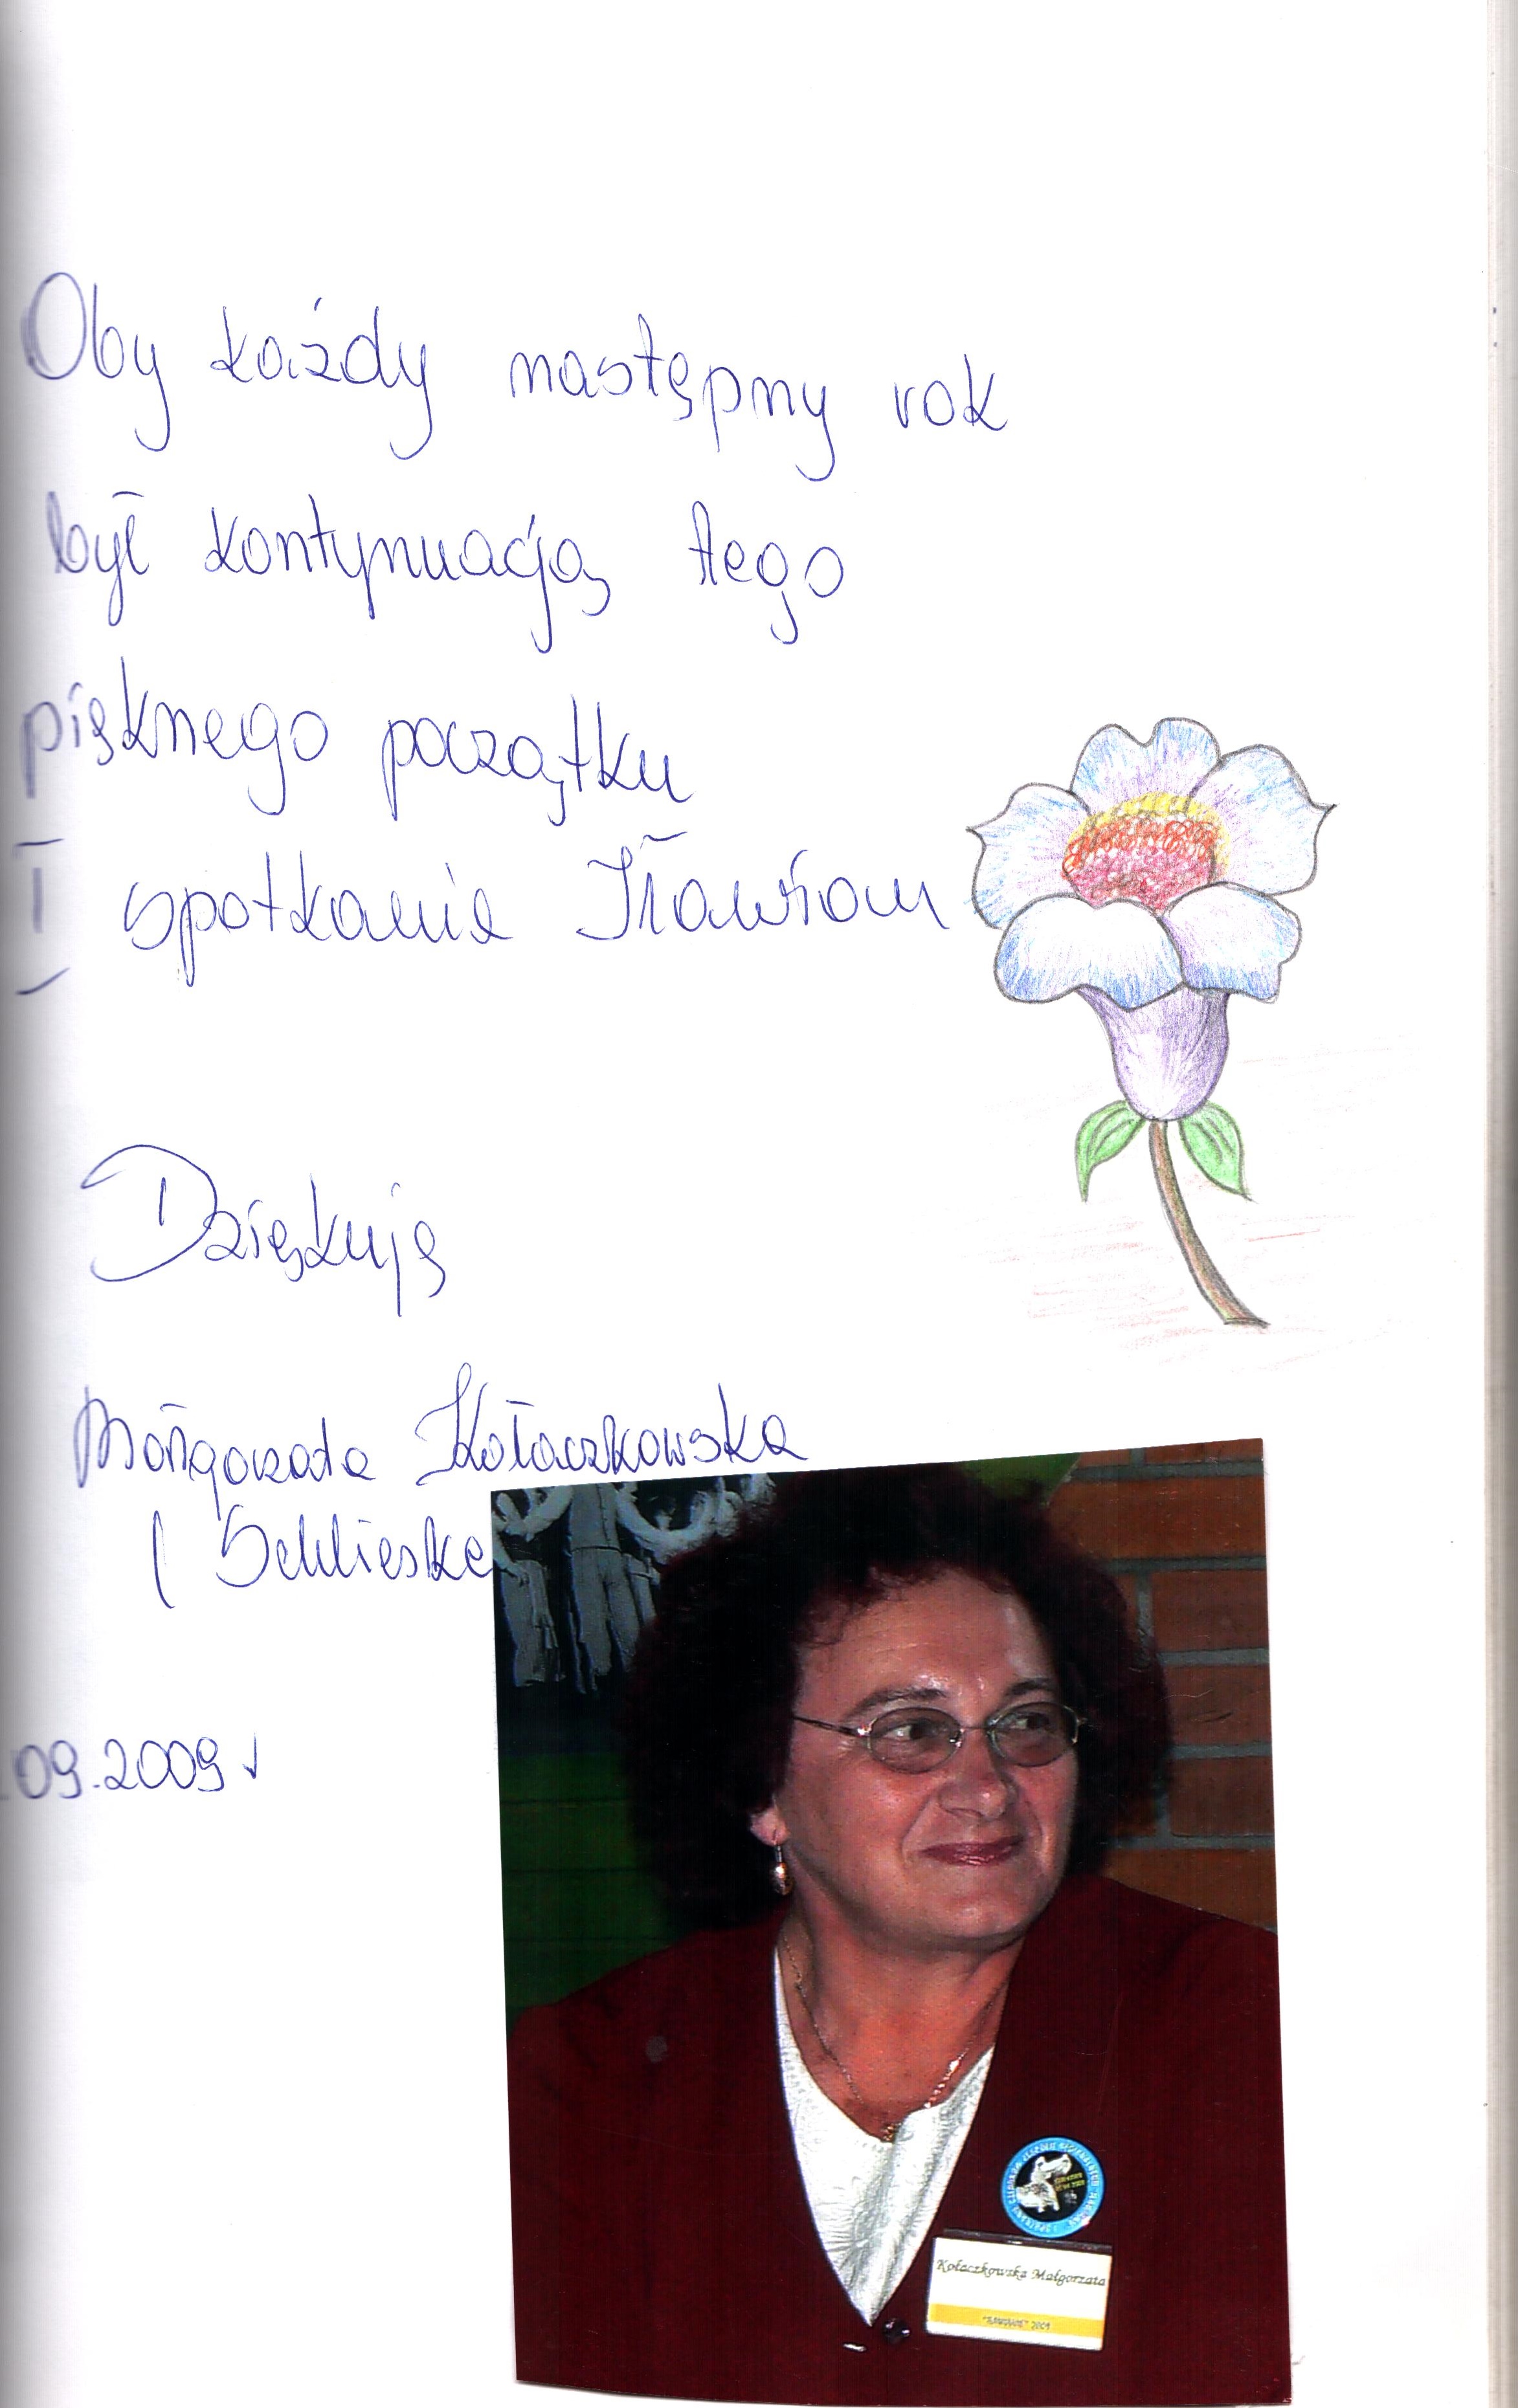 Oby każdy następny rok
był kontynuacją tego
pięknego początku
I spotkanie Iławian
Dziękuję
Małgorzata Kołaczkowska
( Schlieske
.09.2009 r
Kołaczkowska Małgorzata
2009